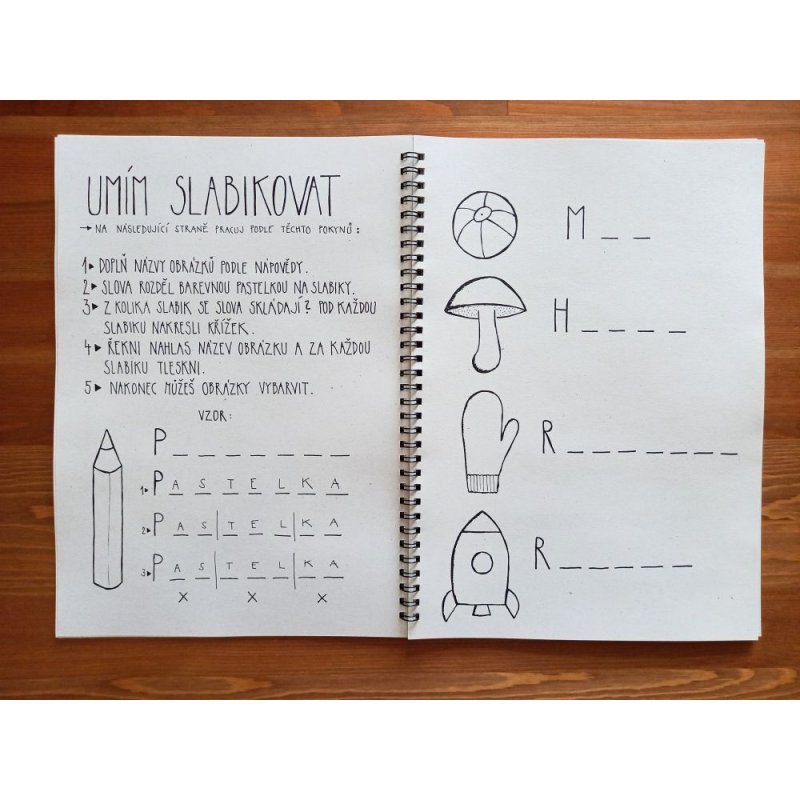 UMÍM SLABIKOVAT
→ NA NÁSLEDUJÍCÍ STRANĚ PRACUJ PODLE TĚCHTO POKYNŮ:
1▸ DOPLŇ NÁZVY OBRÁZKŮ PODLE NÁPOVĚDY.
2▸ SLOVA ROZDĚL BAREVNOU PASTELKOU NA SLABIKY.
3▸ Z KOLIKA SLABIK SE SLOVA SKLÁDAJÍ? POD KAŽDOU
SLABIKU NAKRESLI KŘÍŽEK.
4▸ ŘEKNI NAHLAS NÁZEV OBRÁZKU A ZA KAŽDOU
SLABIKU TLESKNI.
5▸ NAKONEC MŮŽEŠ OBRÁZKY VYBARVIT.
VZOR:
P _ _ _ _ _ _ _
1▸ P A S T E L K A
2▸ P A S | T E L | K A
3▸ P A S | T E L | K A
X X X
M _ _
H _ _ _ _
R _ _ _ _ _ _ _
R _ _ _ _ _